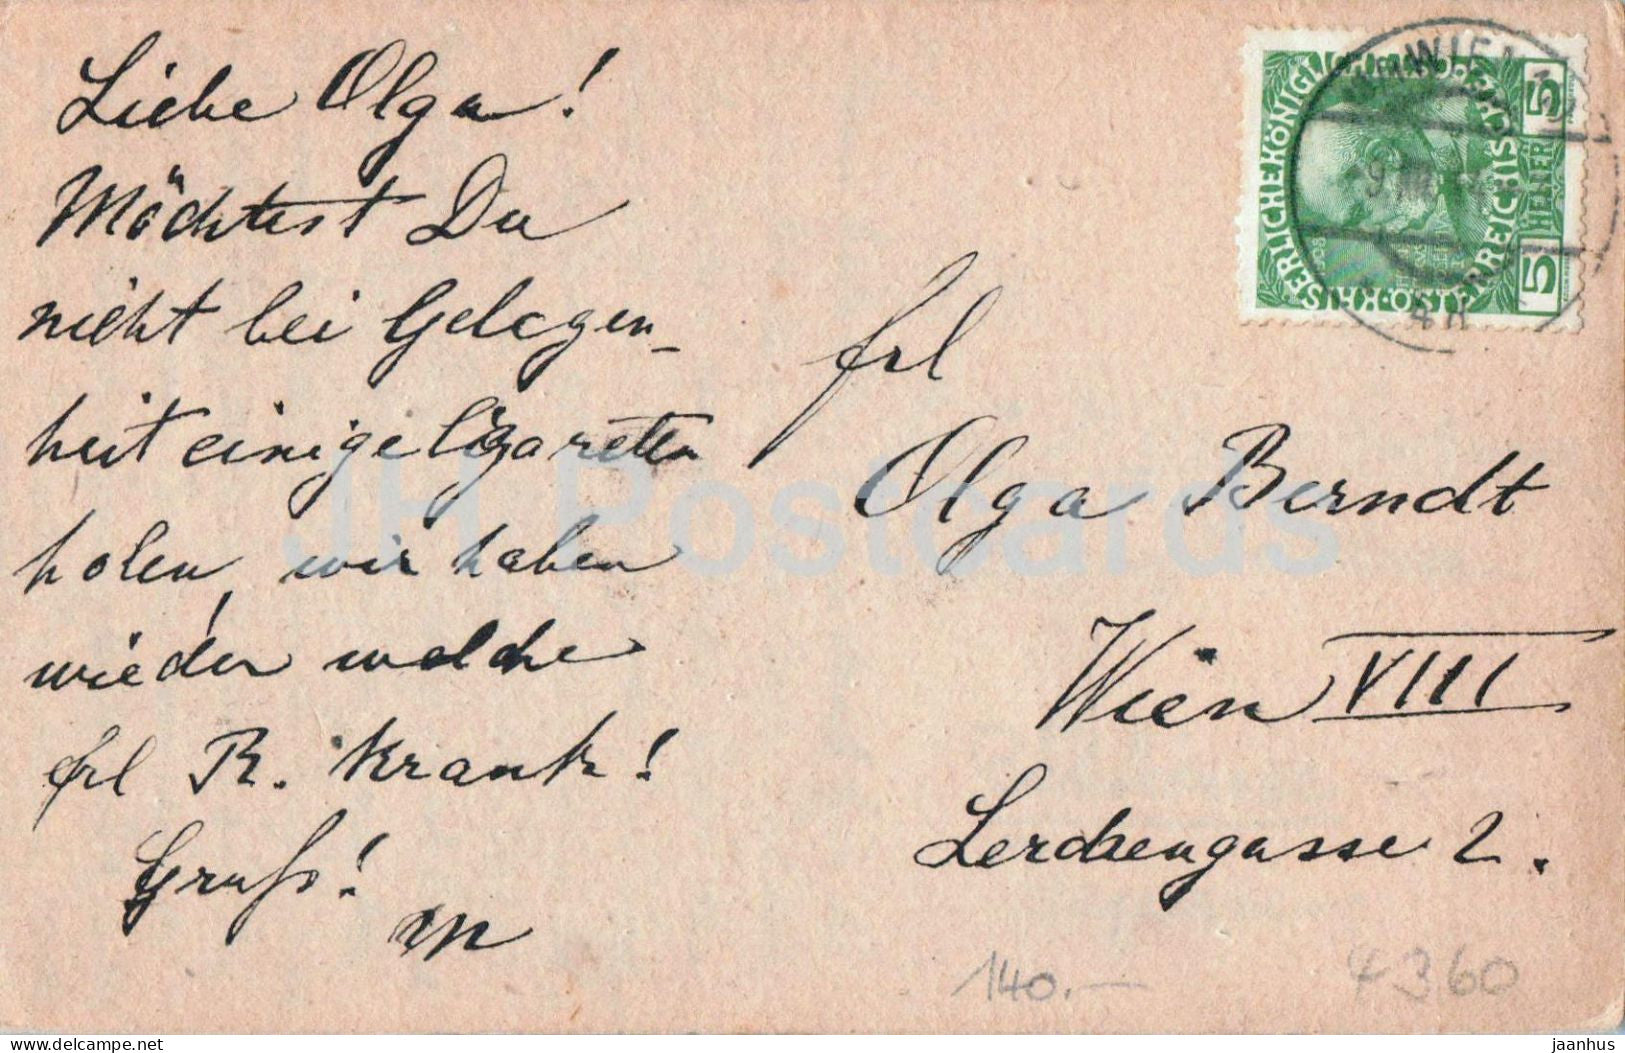 Liebe Olga!
Möchtest Du
nicht bei Gelegen_
heit einige Cigaretten
holen, wir haben
wieder welche
frl R. Krank!
Gruß!
M
frl
Olga Berndt
Wien VIII
Lerchengasse 2.
140.—
4360
KAISERLICHE KÖNIGL
ÖSTERREICHISCHE
5 HELLER 5
WIEN
JH Postcards
http://www.delcampe.net
jaanhus